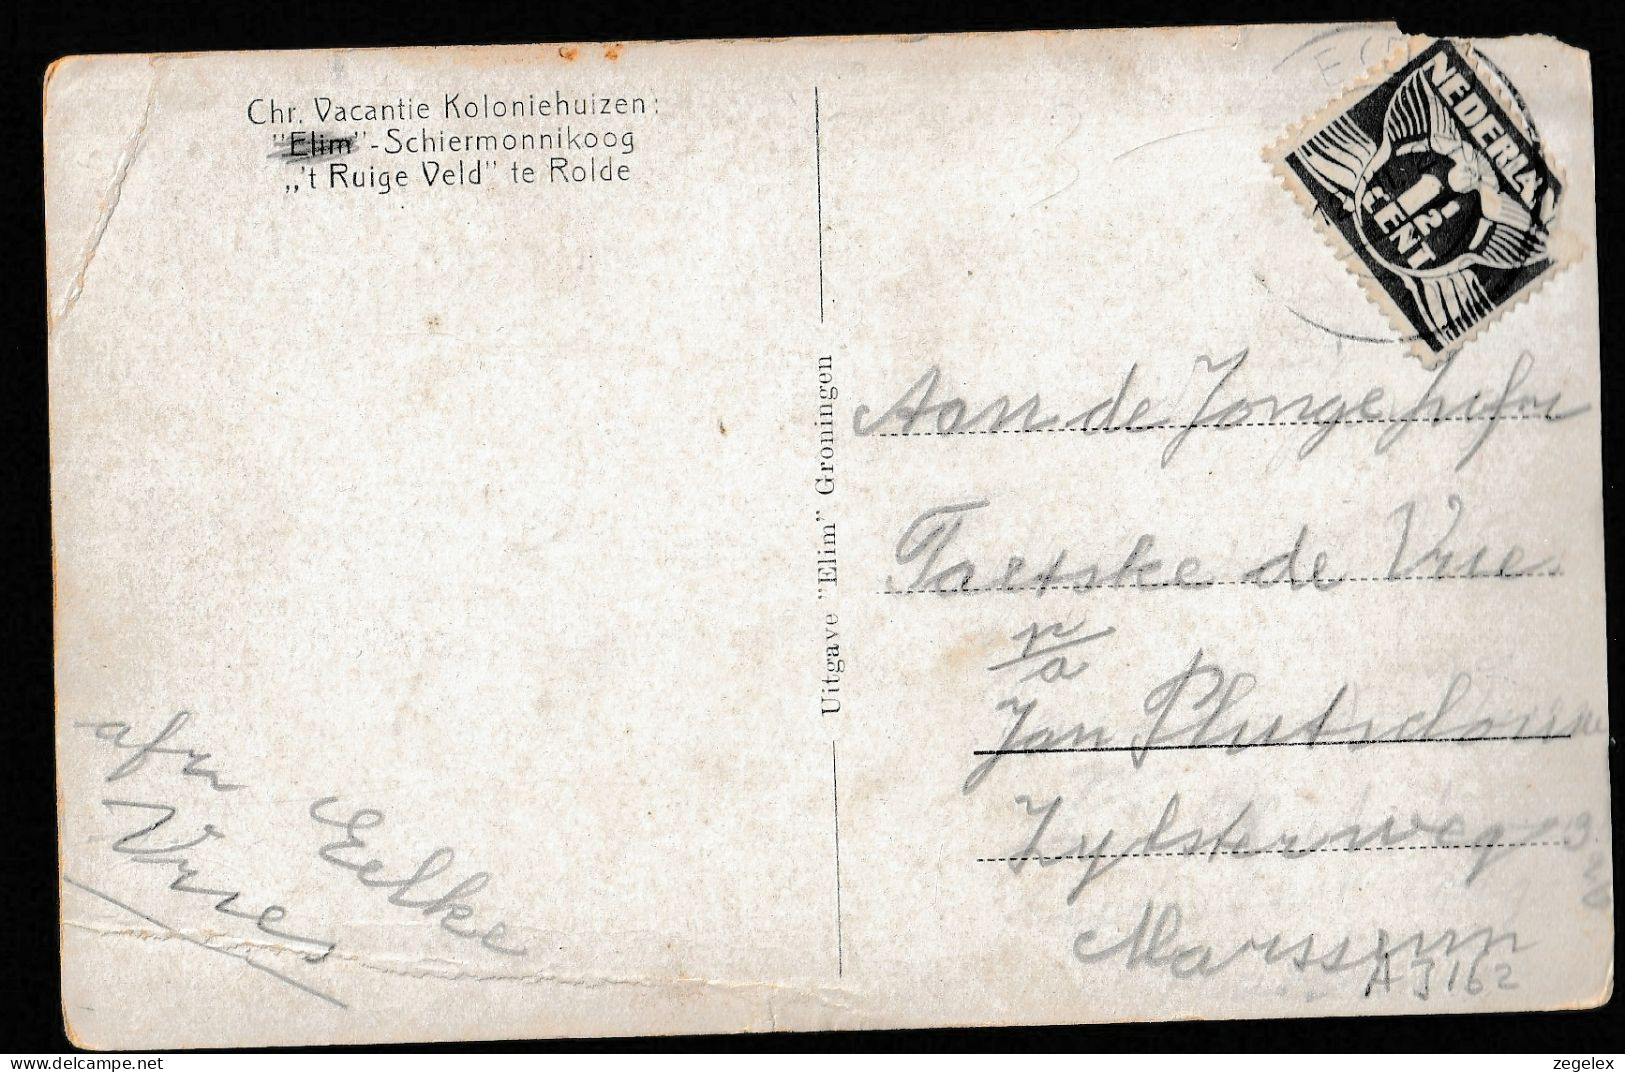 Chr. Vacantie Koloniehuizen:
"Elim"-Schiermonnikoog
„'t Ruige Veld" te Rolde
Uitgave "Elim" Groningen
NEDERLAND
1½
CENT
Aan de Jonge
de Vries
p/a
Jan
Zylsterweg
Marssum
AJ162
afz
Eelke
Vries
zegelex